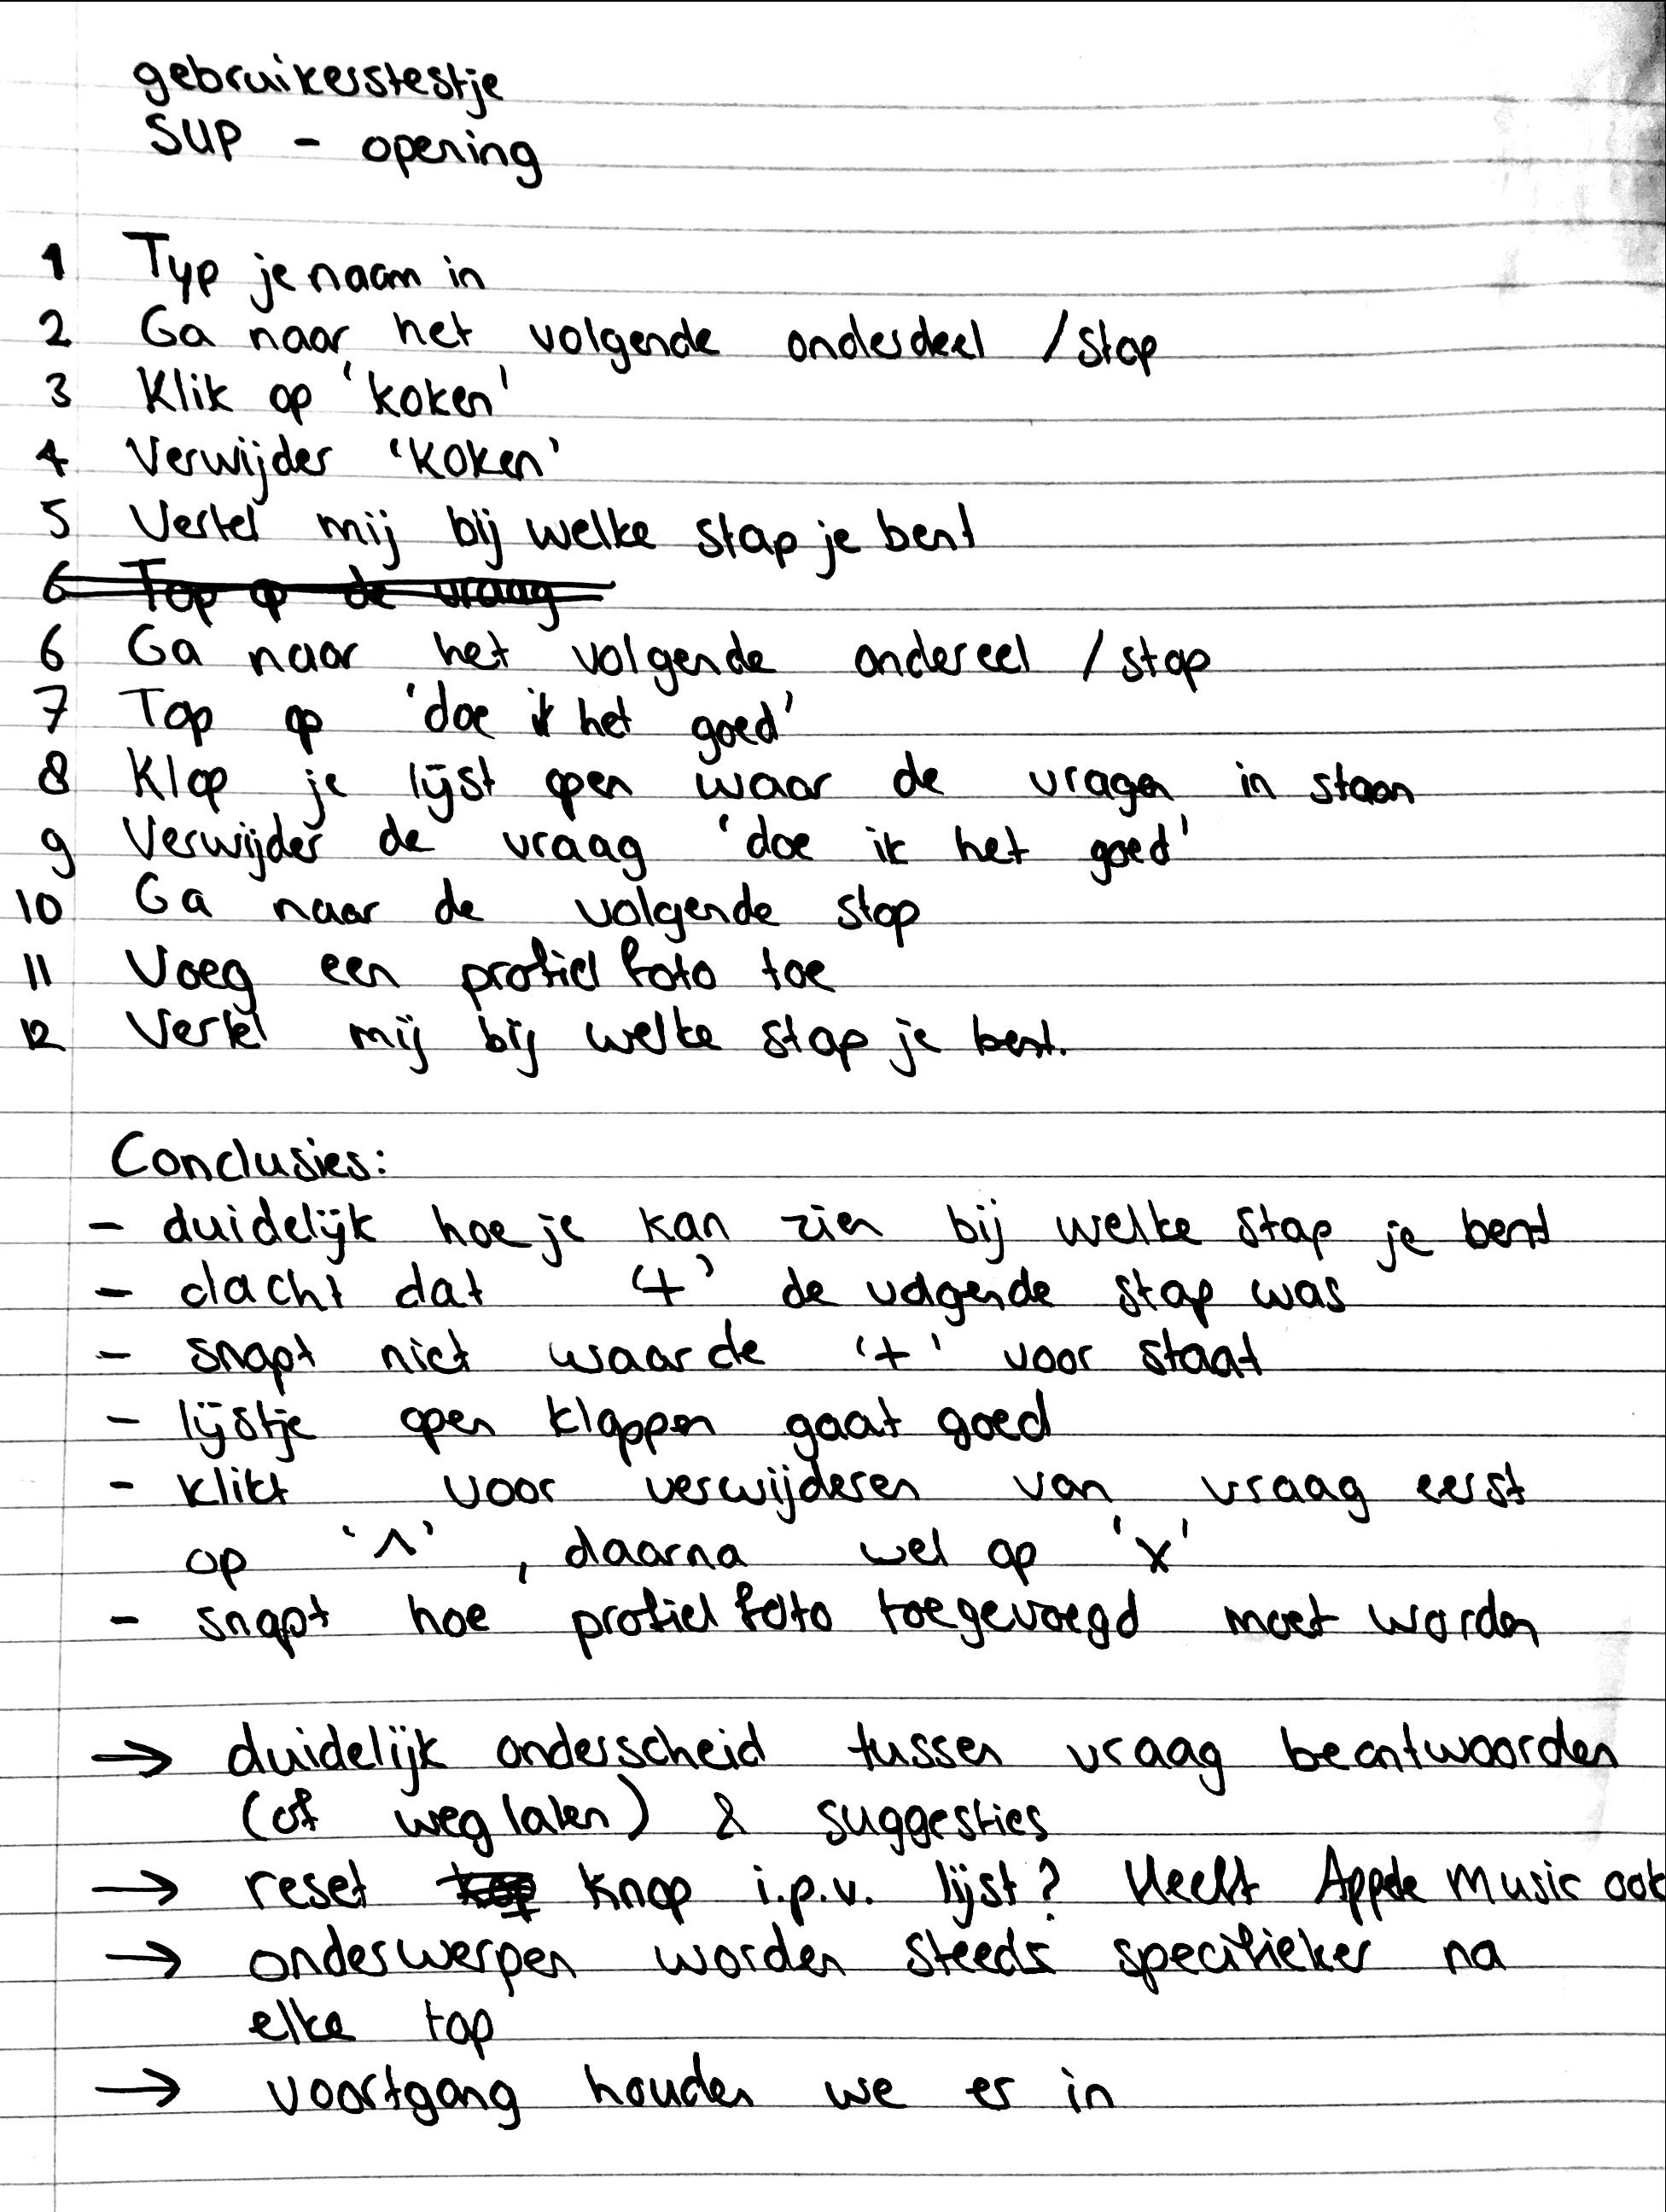 gebruikerstestje
SUP - opening
1 Typ je naam in
2 Ga naar het volgende onderdeel / stap
3 Klik op 'koken'
4 Verwijder 'koken'
5 Vertel mij bij welke stap je bent
6 Tap op de vraag
6 Ga naar het volgende ondereel / stap
7 Tap op 'doe ik het goed'
8 Klap je lijst open waar de vragen in staan
9 Verwijder de vraag 'doe ik het goed'
10 Ga naar de volgende stap
11 Voeg een profiel foto toe
12 Vertel mij bij welke stap je bent.
Conclusies:
- duidelijk hoe je kan zien bij welke stap je bent
- dacht dat '+' de volgende stap was
- snapt niet waar de '+' voor staat
- lijstje open klappen gaat goed
- klikt voor verwijderen van vraag eerst
op '^', daarna wel op 'x'
- snapt hoe profiel foto toegevoegd moet worden
→ duidelijk onderscheid tussen vraag beantwoorden
(of weg laten) & suggesties
→ reset knop i.p.v. lijst? Heeft Apple Music ook
→ onderwerpen worden steeds specifieker na
elke tap
→ voortgang houden we er in